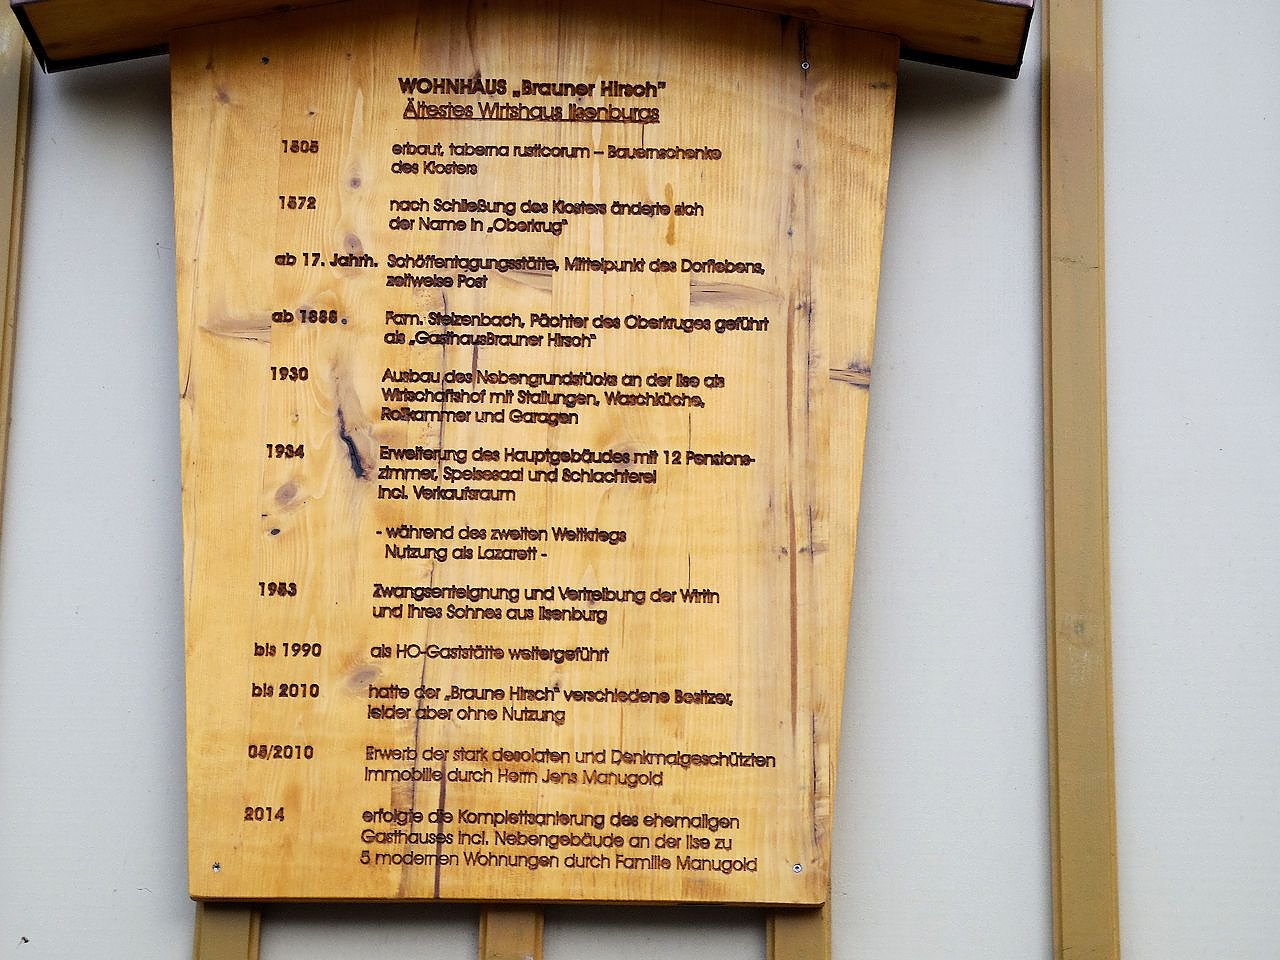 WOHNHAUS „Brauner Hirsch"
Ältestes Wirtshaus Ilsenburgs
1505 erbaut, taberna rusticorum – Bauernschenke
des Klosters
1572 nach Schließung des Klosters änderte sich
der Name in „Oberkrug"
ab 17. Jahrh. Schöffentagungsstätte, Mittelpunkt des Dorflebens,
zeitweise Post
ab 1888. Fam. Stelzenbach, Pächter des Oberkruges geführt
als „GasthausBrauner Hirsch"
1930 Ausbau des Nebengrundstücks an der Ilse als
Wirtschaftshof mit Stallungen, Waschküche,
Rollkammer und Garagen
1934 Erweiterung des Hauptgebäudes mit 12 Pensions-
zimmer, Speisesaal und Schlachterei
incl. Verkaufsraum
- während des zweiten Weltkriegs
Nutzung als Lazarett -
1953 Zwangsenteignung und Vertreibung der Wirtin
und ihres Sohnes aus Ilsenburg
bis 1990 als HO-Gaststätte weitergeführt
bis 2010 hatte der „Braune Hirsch" verschiedene Besitzer,
leider aber ohne Nutzung
05/2010 Erwerb der stark desolaten und Denkmalgeschützten
Immobilie durch Herrn Jens Manugold
2014 erfolgte die Komplettsanierung des ehemaligen
Gasthauses incl. Nebengebäude an der Ilse zu
5 modernen Wohnungen durch Familie Manugold